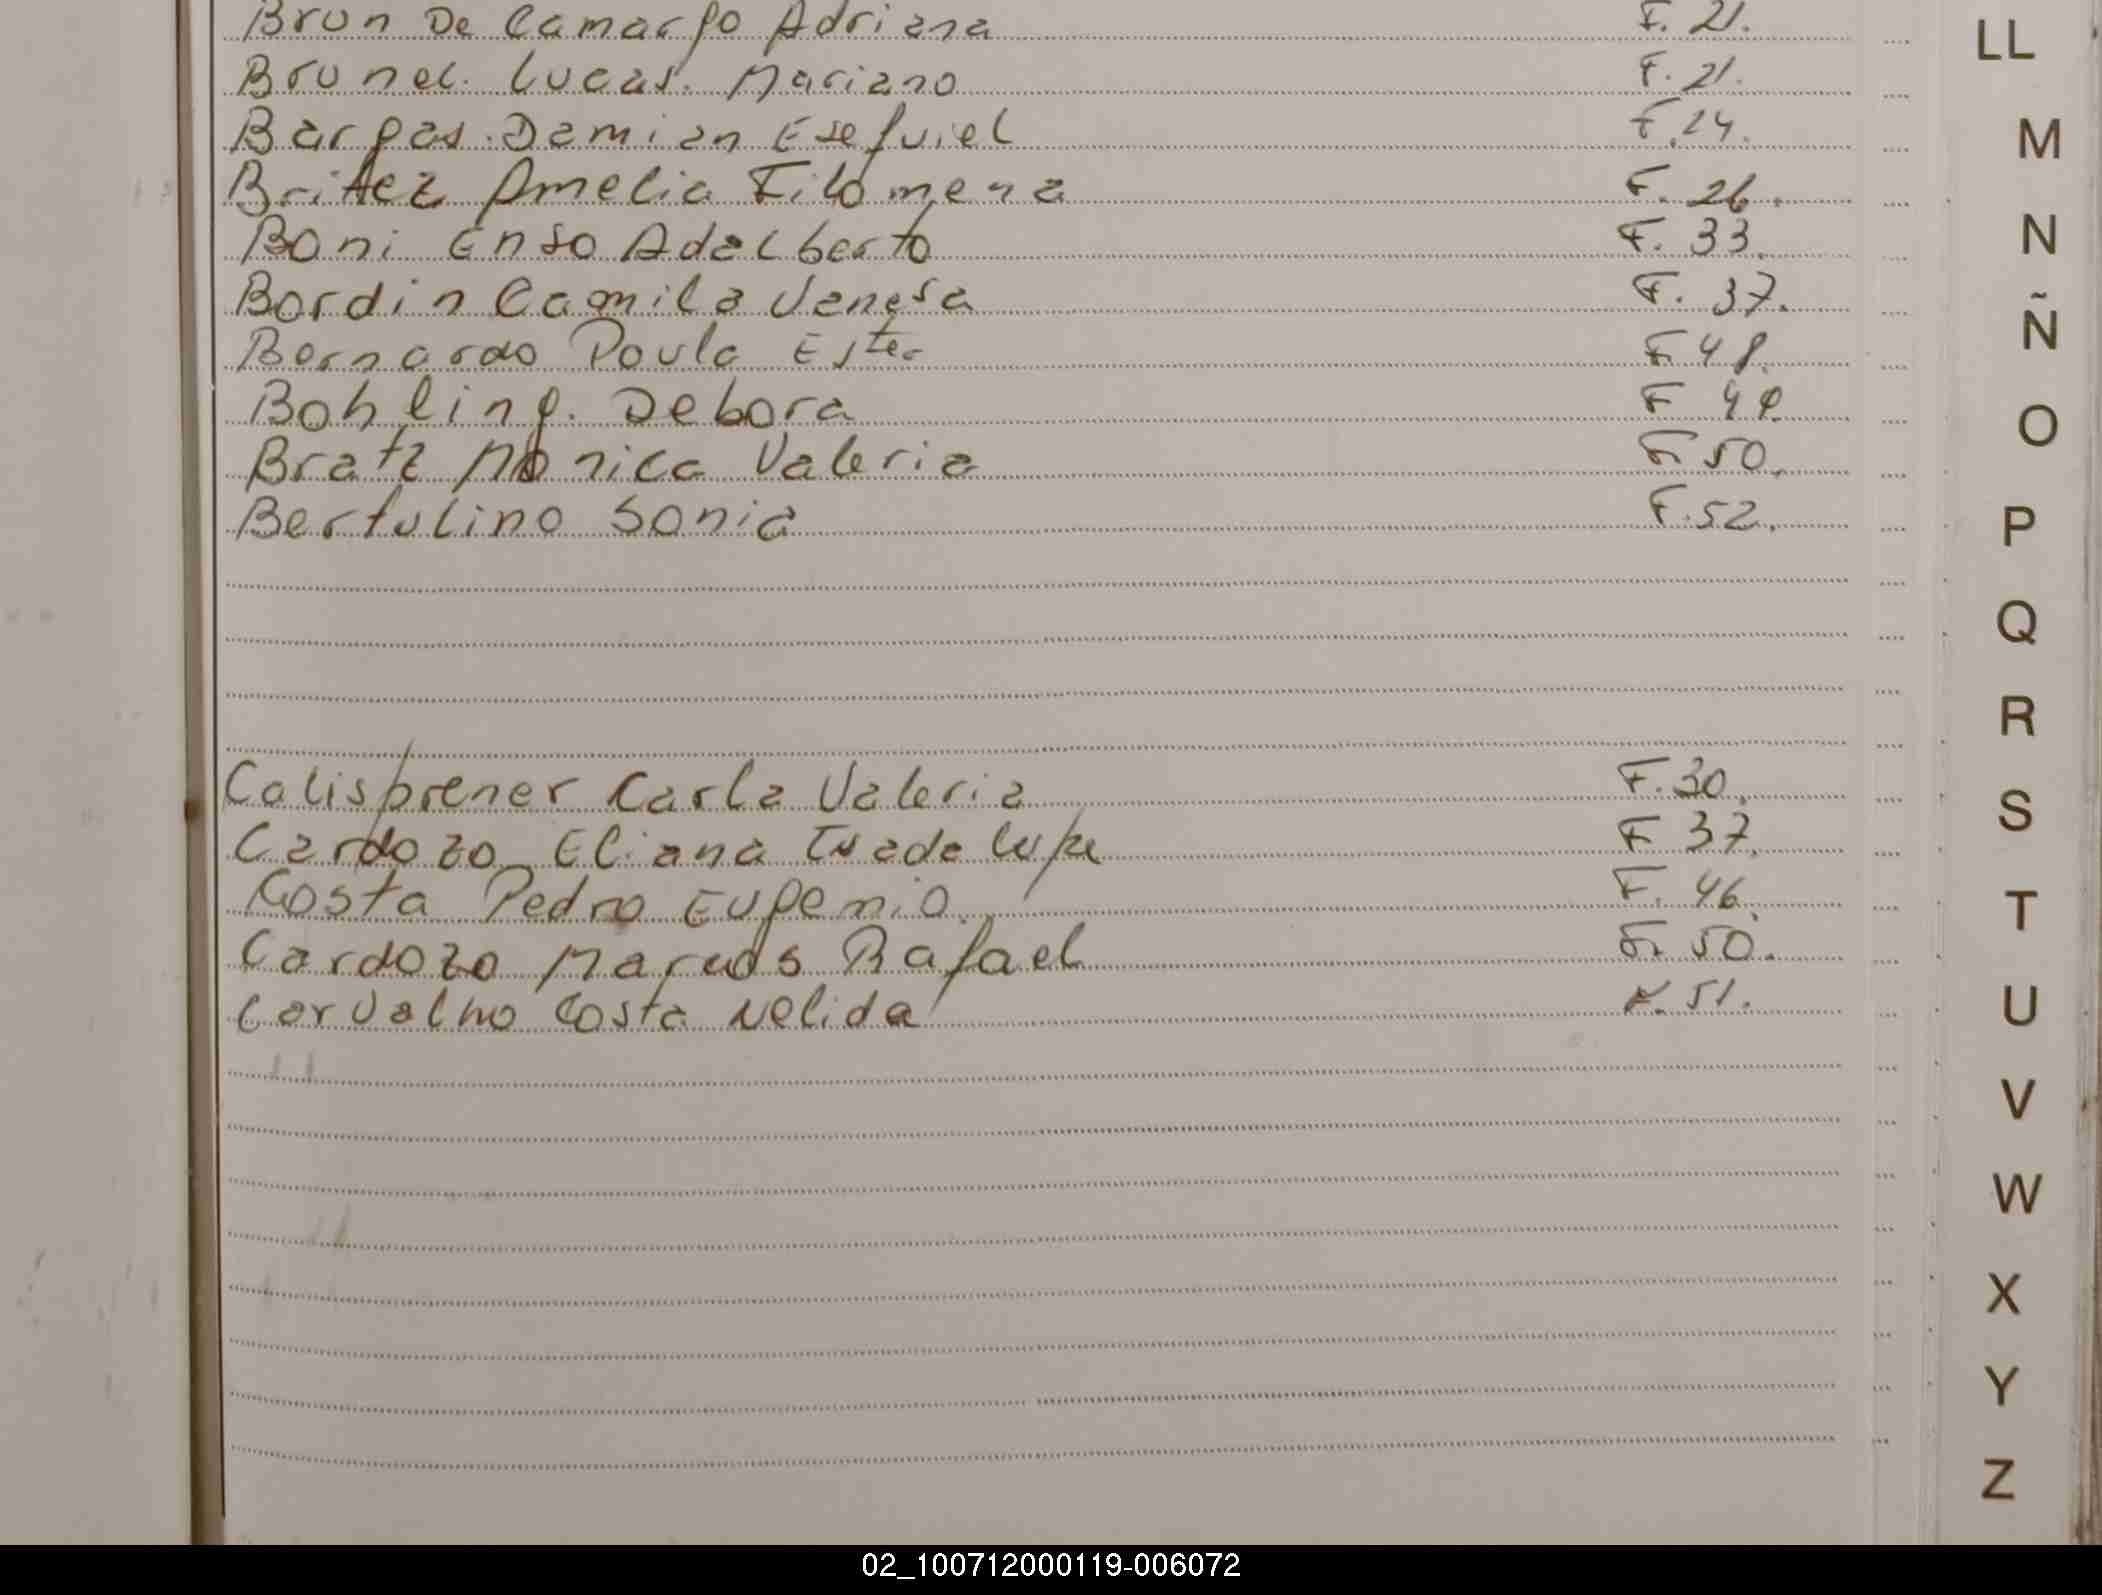 Brun De Camargo Adriana F. 21.
Brunel. Lucas. Mariano F. 21.
Bargas. Damian Esequiel F. 24.
Britez Amelia Filomena F. 26.
Boni Enso Adalberto F. 33.
Bordin Camila Vanesa F. 37.
Bernardo Paula Ester F. 48.
Bohling. Debora F 49.
Bratz Monica Valeria F. 50.
Bertulino Sonia F. 52.
Calisbrener Carla Valeria F. 30.
Cardozo Eliana F 37.
Costa Pedro Eugenio. F. 46.
Cardozo Marcos Rafael F. 50.
Carvalho Costa Nelida F. 51.
LL
M
N
Ñ
O
P
Q
R
S
T
U
V
W
X
Y
Z
02_100712000119-006072